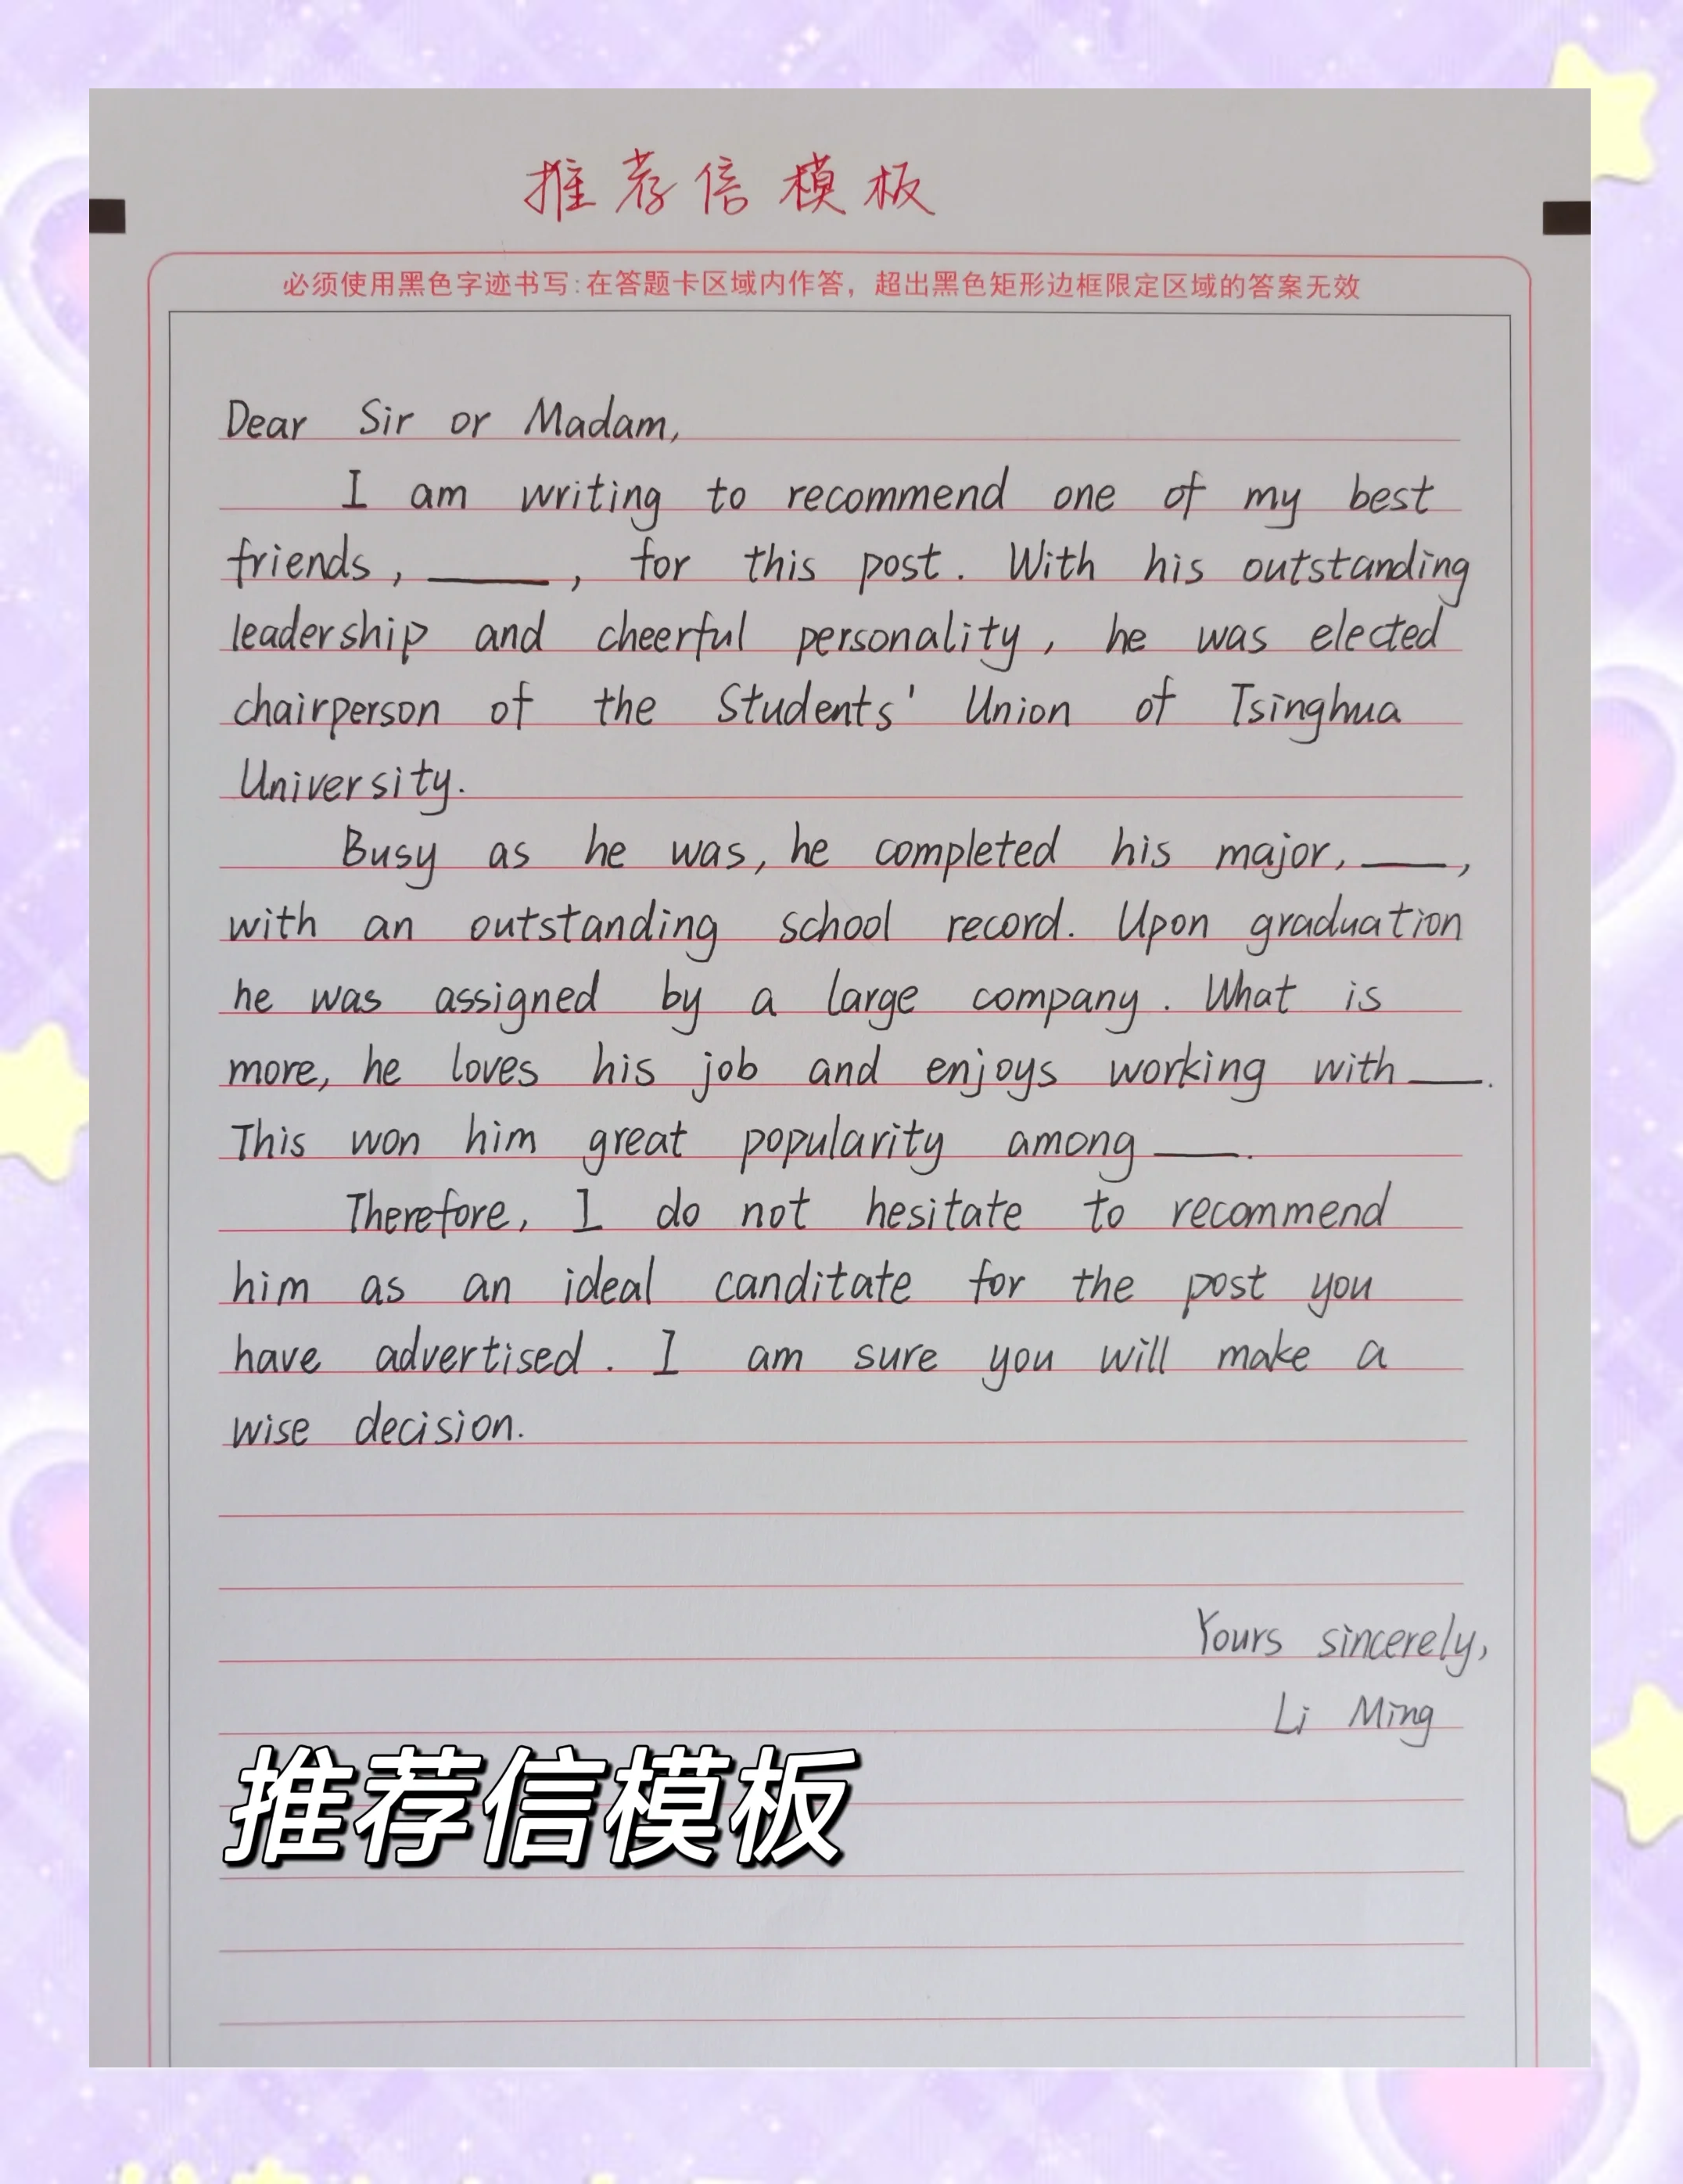 推荐信模板
必须使用黑色字迹书写:在答题卡区域内作答，超出黑色矩形边框限定区域的答案无效
Dear Sir or Madam,
I am writing to recommend one of my best
friends, ____, for this post. With his outstanding
leadership and cheerful personality, he was elected
chairperson of the Students' Union of Tsinghua
University.
Busy as he was, he completed his major, ___,
with an outstanding school record. Upon graduation
he was assigned by a large company. What is
more, he loves his job and enjoys working with ___.
This won him great popularity among ___.
Therefore, I do not hesitate to recommend
him as an ideal canditate for the post you
have advertised. I am sure you will make a
wise decision.
Yours sincerely,
Li Ming
推荐信模板